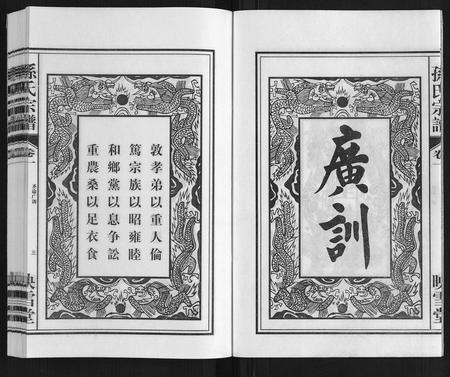 廣訓
孫氏宗譜
卷一
映雪堂
敦孝弟以重人倫
篤宗族以昭雍睦
和鄉黨以息争訟
重農桑以足衣食
孫氏宗譜
卷一
圣谕广训
三
映雪堂